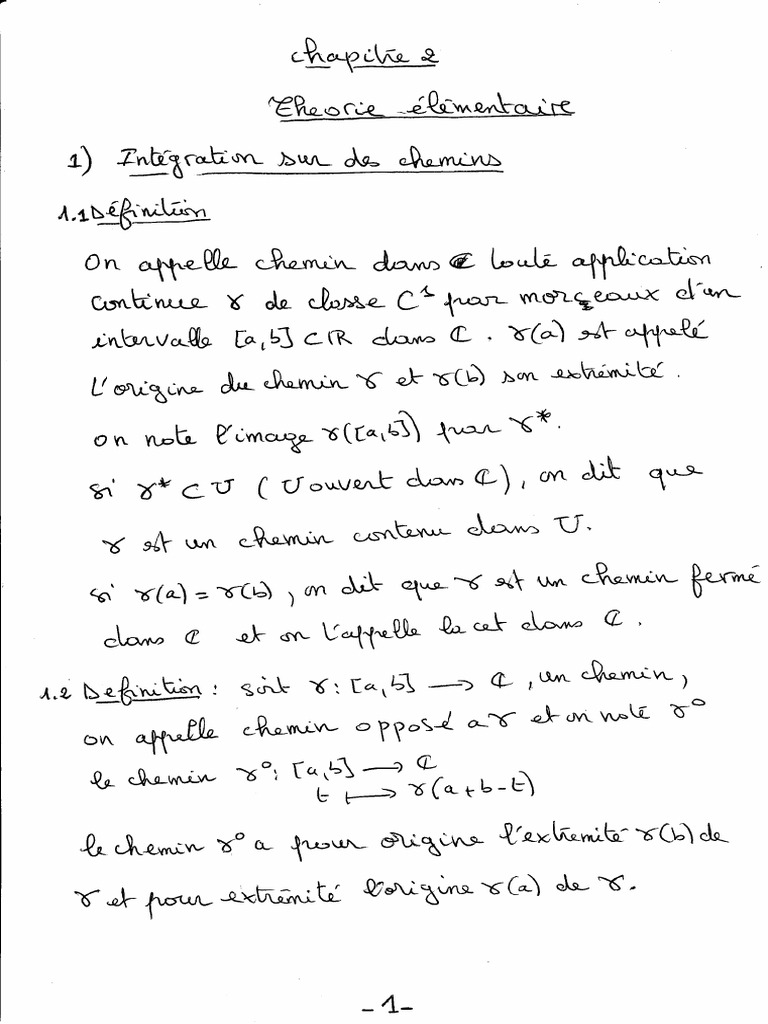 Chapitre 2
Theorie élémentaire
1) Intégration sur des chemins
1.1 Définition
On appelle chemin dans ℂ toute application
continue γ de classe C¹ par morceaux d'un
intervalle [a,b] ⊂ ℝ dans ℂ. γ(a) est appelé
L'origine du chemin γ et γ(b) son extrémité.
on note l'image γ([a,b]) par γ*.
si γ* ⊂ U (U ouvert dans ℂ), on dit que
γ est un chemin contenu dans U.
si γ(a) = γ(b), on dit que γ est un chemin fermé
dans ℂ et on l'appelle lacet dans ℂ.
1.2 Definition : soit γ : [a,b] → ℂ, un chemin,
on appelle chemin opposé a γ et on note γ⁰
le chemin γ⁰: [a,b] → ℂ
t ↦ γ(a+b-t)
le chemin γ⁰ a pour origine l'extremité γ(b) de
γ et pour extrémité l'origine γ(a) de γ.
-1-